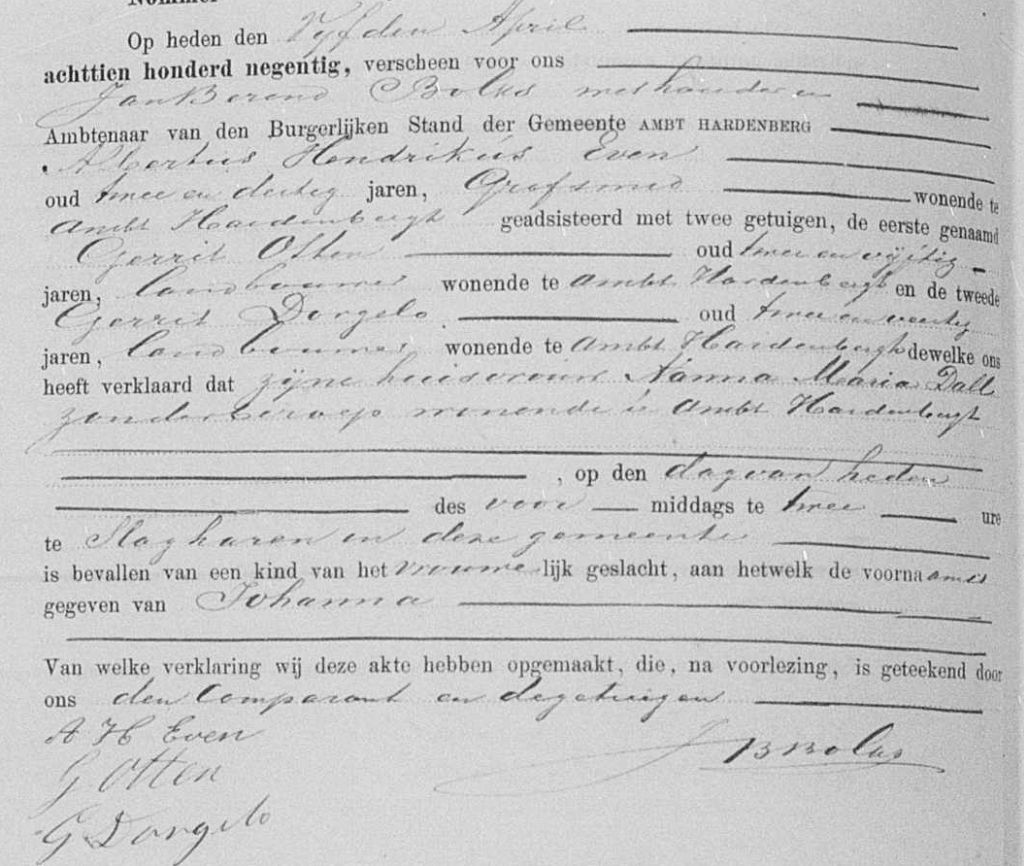 Op heden den Vyfden April
achttien honderd negentig, verscheen voor ons
Jan Berend Bolks wethouder
Ambtenaar van den Burgerlijken Stand der Gemeente AMBT HARDENBERG
Albertus Hendrikus Even
oud twee en dertig jaren, Grofsmid wonende te
Ambt Hardenbergh geadsisteerd met twee getuigen, de eerste genaamd
Gerrit Otten oud twee en vyftig
jaren, landbouwer wonende te Ambt Hardenbergh en de tweede
Gerrit Dorgelo oud twee en veertig
jaren, landbouwer wonende te Ambt Hardenbergh dewelke ons
heeft verklaard dat zyne huisvrouw Nanna Maria Dall
zonder beroep wonende in Ambt Hardenbergh
, op den dag van heden
des voor middags te twee ure
te Slagharen in deze gemeente
is bevallen van een kind van het vrouwe lijk geslacht, aan hetwelk de voornaamen
gegeven van Johanna
Van welke verklaring wij deze akte hebben opgemaakt, die, na voorlezing, is geteekend door
ons den Comparant en de getuigen
A H Even
JB Bolks
G Otten
G Dorgelo